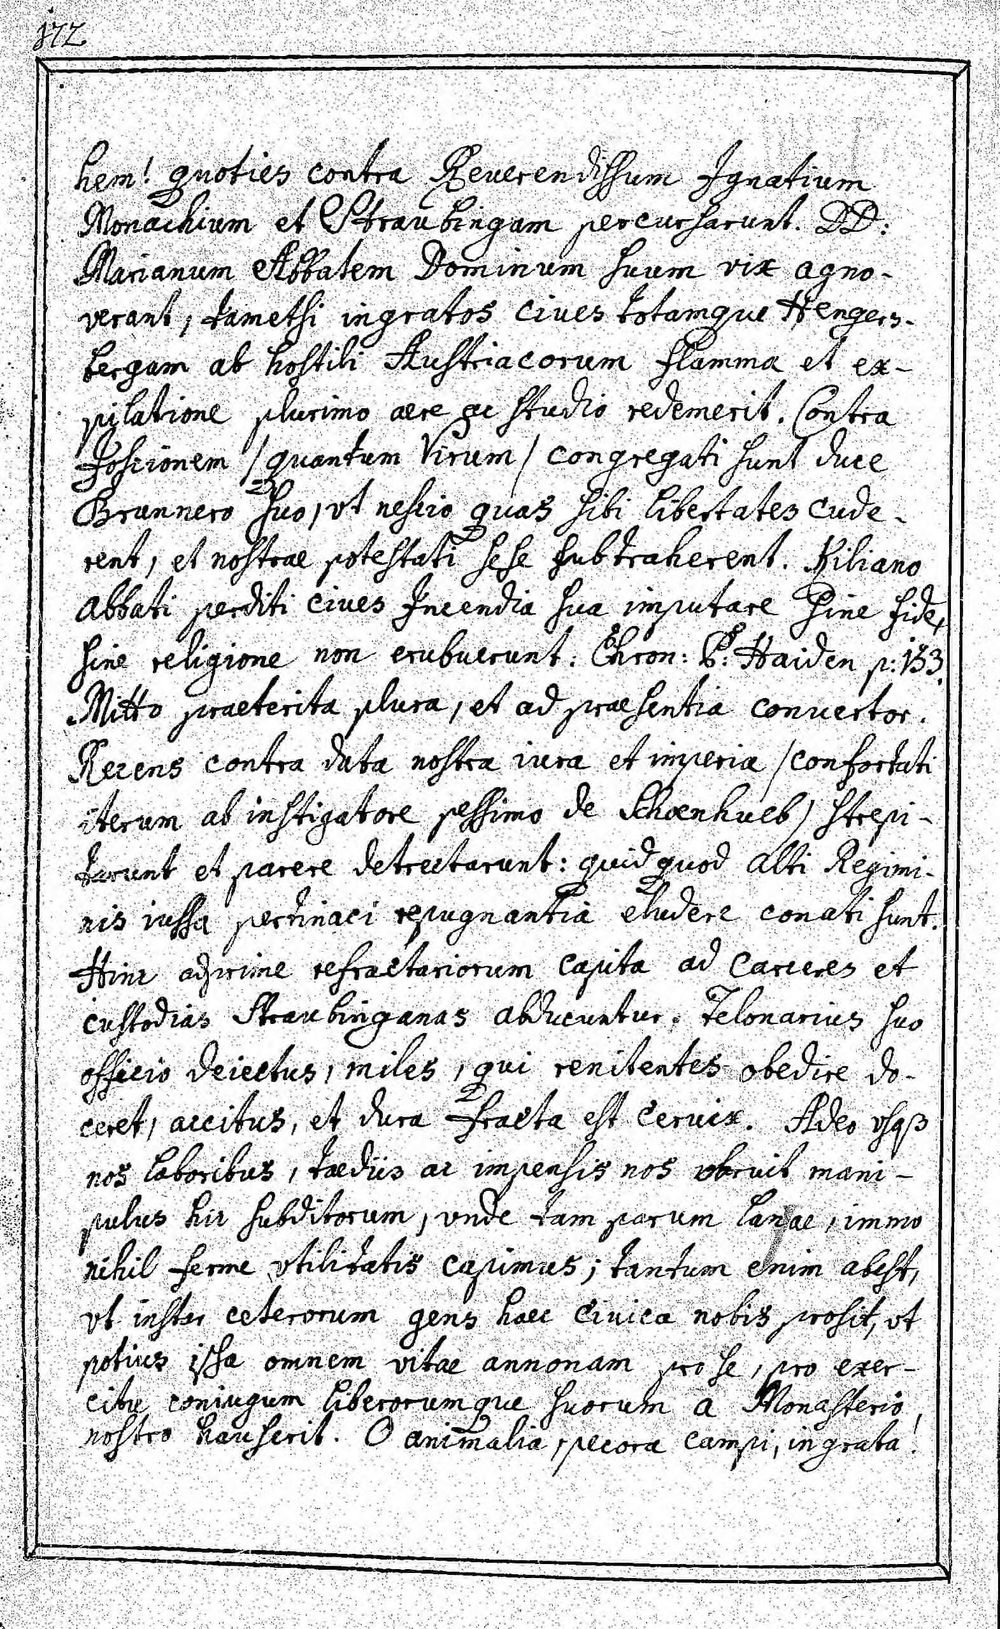 172
hem! quoties contra Reuerendissum Ignatium
Monachium et Straubingam percursarunt. DD:
Marianum Abbatem Dominum suum vix agno-
verant, tametsi ingratos cives totamque Hengers-
bergam ab hostili Austriacorum flamma et ex-
pilatione plurimo aere ac studio redemerit. Contra
Joscionem /quantum Virum/ congregati sunt duce
Brunnero suo, vt nescio quas sibi libertates cude-
rent, et nostrae potestati sese subtraherent. Kiliano
Abbati perditi cives Incendia sua imputare sine fide,
sine religione non erubuerunt: Chron: P: Haiden p: 153.
Mitto praeterita plura, et ad praesentia conuertor.
Recens contra data nostra iura et imperia /confortati
iterum ab instigatore pessimo de Schoenhueb/ strepi-
tarunt et parere detrectarunt: quid quod alti Regimi-
nis iussa pertinaci repugnantia eludere conati sunt.
Hinc apprime refractariorum capita ad Carceres et
custodias Straubinganas abducuntur. Telonarius suo
officio deiectus, miles, qui renitentes obedire do-
ceret, accitus, et dura fracta est cervix. Adeo vsqз
nos laboribus, taediis ac impensis nos obruit mani-
pulus hic subditorum, vnde tam parum lanae, immo
nihil ferme vtilitatis capimus; tantum enim abest,
vt instar ceterorum gens haec Civica nobis prosit, vt
potius ipsa omnem vitae annonam pro se, pro exer-
citu coniugum liberorumque suorum a Monasterio
nostro hauserit. O animalia, pecora campi, ingrata!